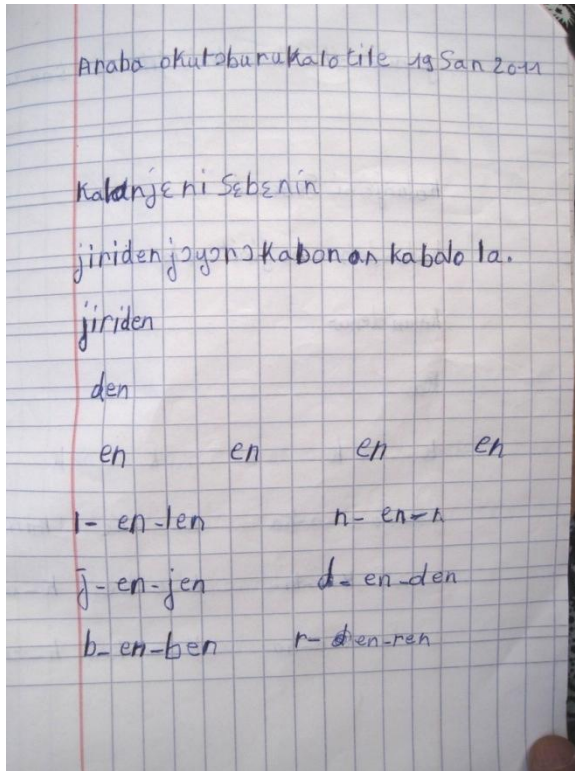 Araba okutɔburukalo tile 19 San 2011
Kalanjɛ ni Sɛbɛnin
jiriden jɔyɔrɔ ka bon an ka balo la.
jiriden
den
en en en en
l- en-len n- en-n
j- en-jen d- en-den
b- en-ben r- en-ren